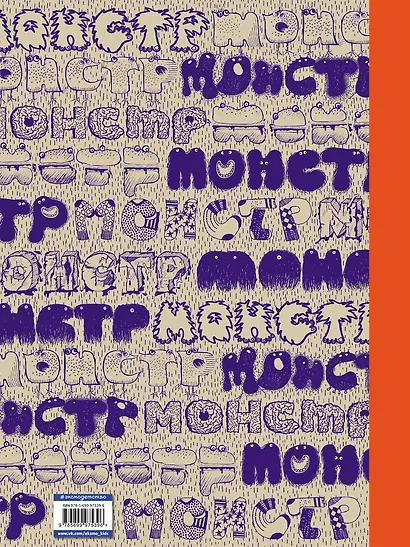 МОНСТР МОНС
МОНСТР МОНСТ
МОНСтр МОНС
МОНСТР МОНСТР
ТР МОНСТР М
ОНСТР МОНС
НСТР МОНСТР
МОНСТР МОНСТ
НСТР МОНСтр
НСТР МОНС
ТР МОНСТР
#эксмодетство
ISBN 978-5-699-97539-6
9 785699 975396
www.vk.com/eksmo_kids